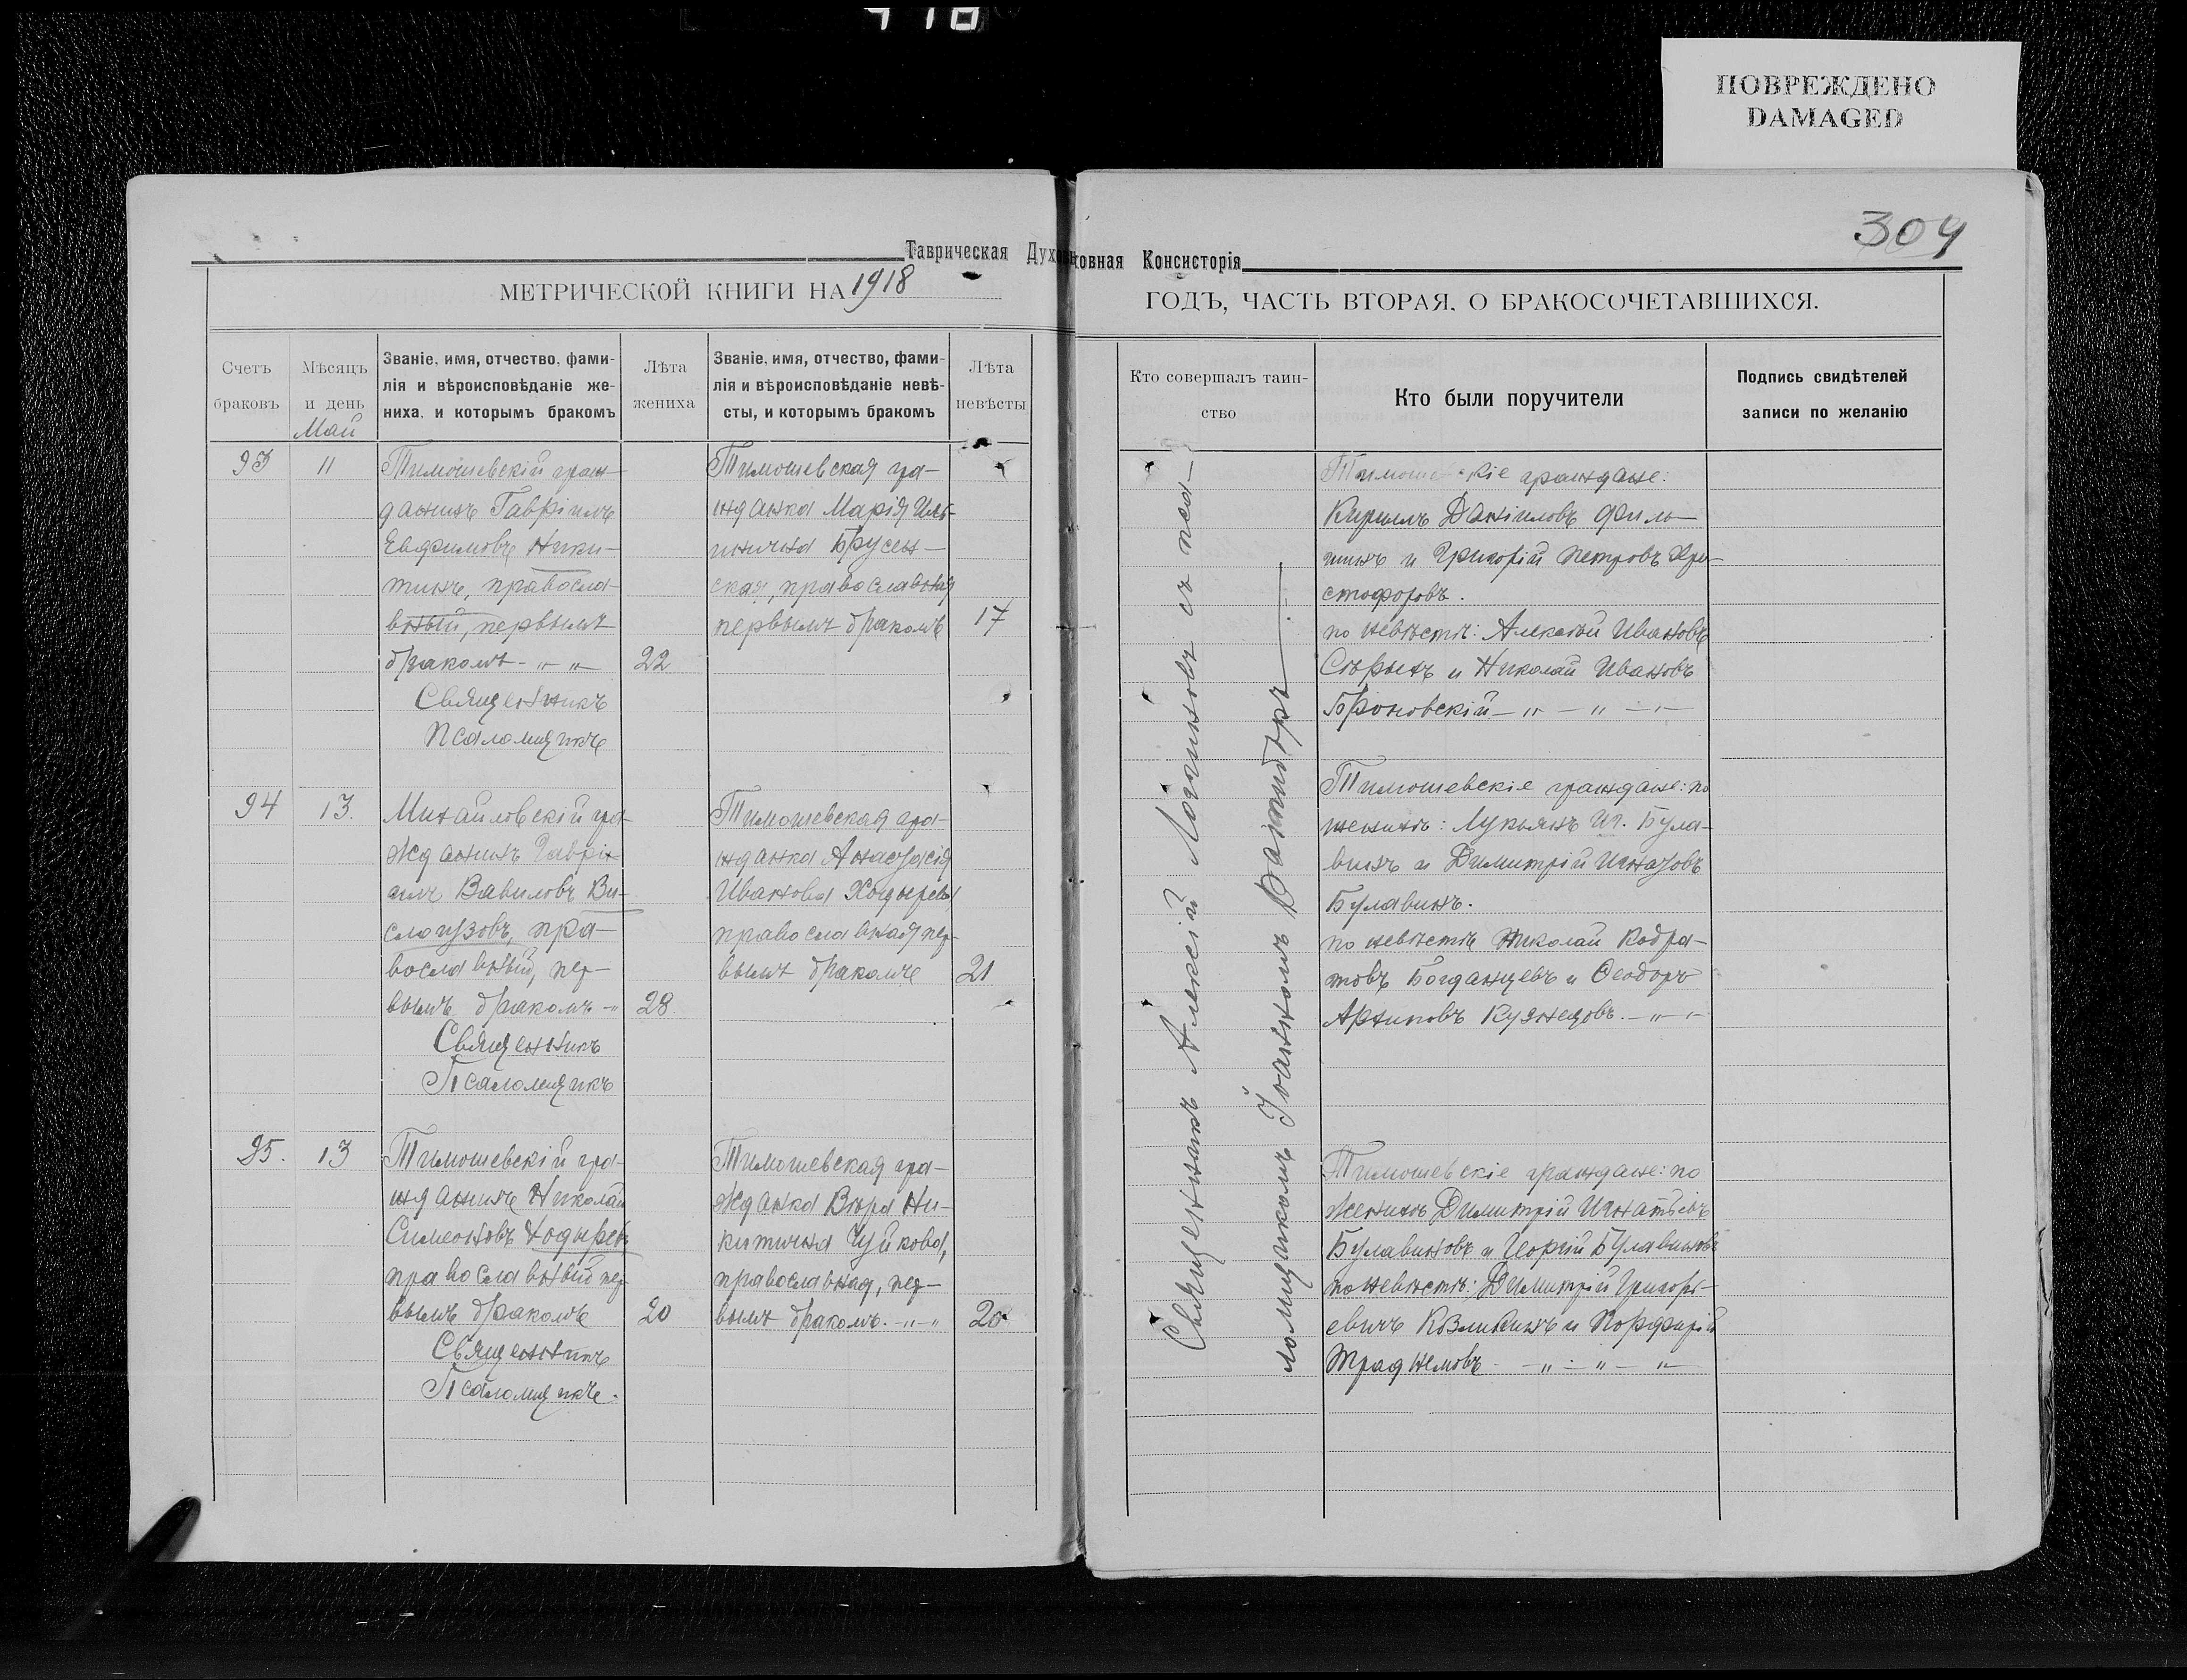 ПОВРЕЖДЕНО
DAMAGED
304
Таврическая Духовная Консисторія
МЕТРИЧЕСКОЙ КНИГИ НА 1918
ГОДЪ, ЧАСТЬ ВТОРАЯ, О БРАКОСОЧЕТАВШИХСЯ.
Счетъ
браковъ
Мѣсяцъ
и день
Май
Званіе, имя, отчество, фами-
лія и вѣроисповѣданіе же-
ниха, и которымъ бракомъ
Лѣта
жениха
Званіе, имя, отчество, фами-
лія и вѣроисповѣданіе невѣ-
сты, и которымъ бракомъ
Лѣта
невѣсты
Кто совершалъ таин-
ство
Кто были поручители
Подпись свидѣтелей
записи по желанію
93
11
Тимошевскій граж-
данинъ Гавріилъ
Евфимовъ Ники-
тинъ, правосла-
вный, первымъ
бракомъ - " " -
22
Священникъ
Псаломщикъ
Тимошевская гра-
жданка Марія Иль-
инична Брусен-
ская, православная
первымъ бракомъ
17
Священникъ Алексій Логгиновъ съ пса-
ломщикомъ Іоанномъ
граждане:
Кирилъ Даніиловъ Филь-
шинъ и Григорій Петровъ Хри-
стофоровъ.
по невѣстѣ: Алексѣй Ивановъ
Сѣрыхъ и Николай Ивановъ
Броновскій - " - " - " -
94
13.
Михайловскій гра-
жданинъ Гаврі-
илъ Вавиловъ Ви-
слогузовъ, пра-
вославный, пер-
вымъ бракомъ - "
28.
Священникъ
Псаломщикъ
Тимошевская гра-
жданка Анастасія
Иванова Ходырева
православная пер-
вымъ бракомъ
21
Тимошевскіе граждане: по
женихѣ: Лукьянъ Иг. Була-
винъ и Димитрій Игнатовъ
Булавинъ.
по невѣстѣ Николай Кодра-
товъ Богданцевъ и Ѳеодоръ
Архиповъ Кузнецовъ. - " -
95.
13
Тимошевскій гра-
жданинъ Николай
Симеоновъ Ходыревъ
православный пер-
вымъ бракомъ
20
Священникъ
Псаломщикъ.
Тимошевская гра-
жданка Вѣра Ни-
китична Чуйкова,
православная, пер-
вымъ бракомъ. - " - "
20
Тимошевскіе граждане: по
женихѣ Димитрій Игнатьевъ
Булавиновъ и Георгій Булавиновъ
по невѣстѣ: Димитрій Григорь-
евичъ Козликинъ и Порфирій
- " - " - " -